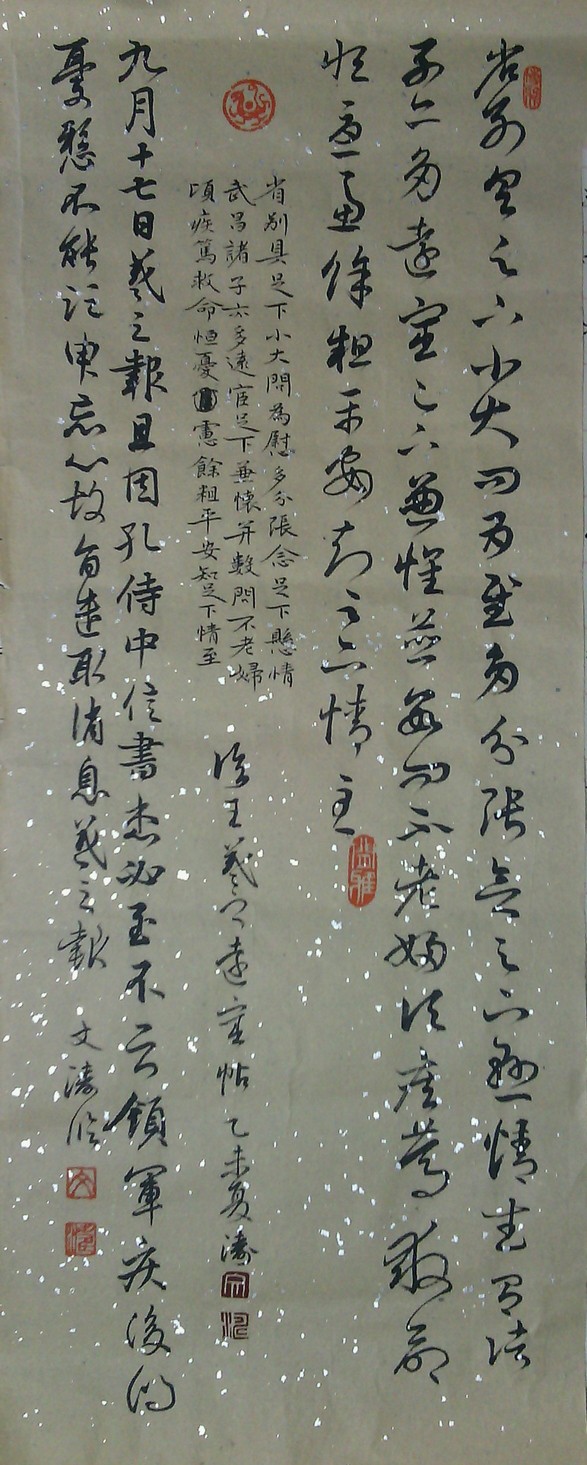 省別具足下小大問為慰多分張念足下懸情武昌諸
子亦多遠宦足下兼懷並數問不老婦頃疾篤救命
恒憂慮餘粗平安知足下情至
省別具足下小大問為慰多分張念足下懸情
武昌諸子亦多遠宦足下兼懷并數問不老婦
頃疾篤救命恒憂慮餘粗平安知足下情至
临王羲之遠宦帖 乙未夏 涛
九月十七日羲之報且因孔侍中信書想必至不云領軍疾後問
憂懸不能須臾忘心故旨遣取消息羲之報 文濤临